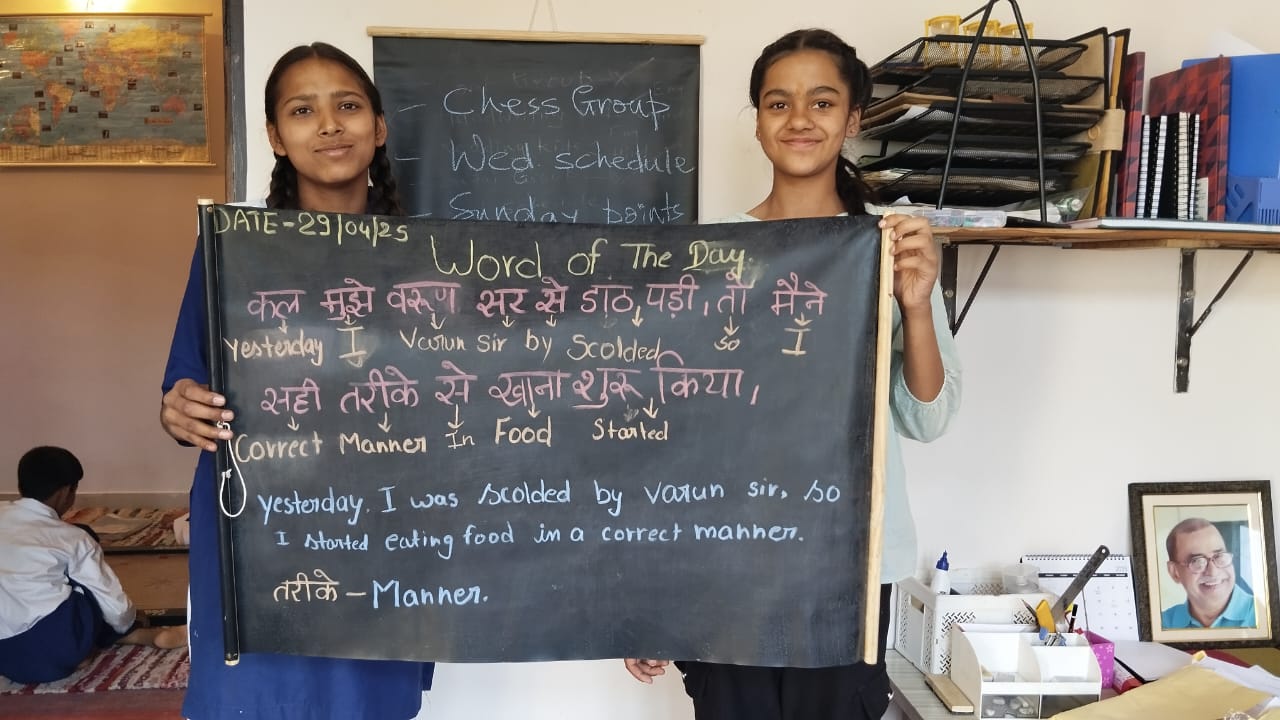 - Chess Group
- Wed schedule
- Sunday points
DATE-29/04/25
Word of The Day.
कल मुझे वरूण सर से डांठ पड़ी, तो मैने
yesterday I Varun Sir by Scolded so I
सही तरीके से खाना शुरू किया,
Correct Manner In Food Started
yesterday. I was scolded by varun sir, so
I started eating food in a correct manner.
तरीके - Manner.